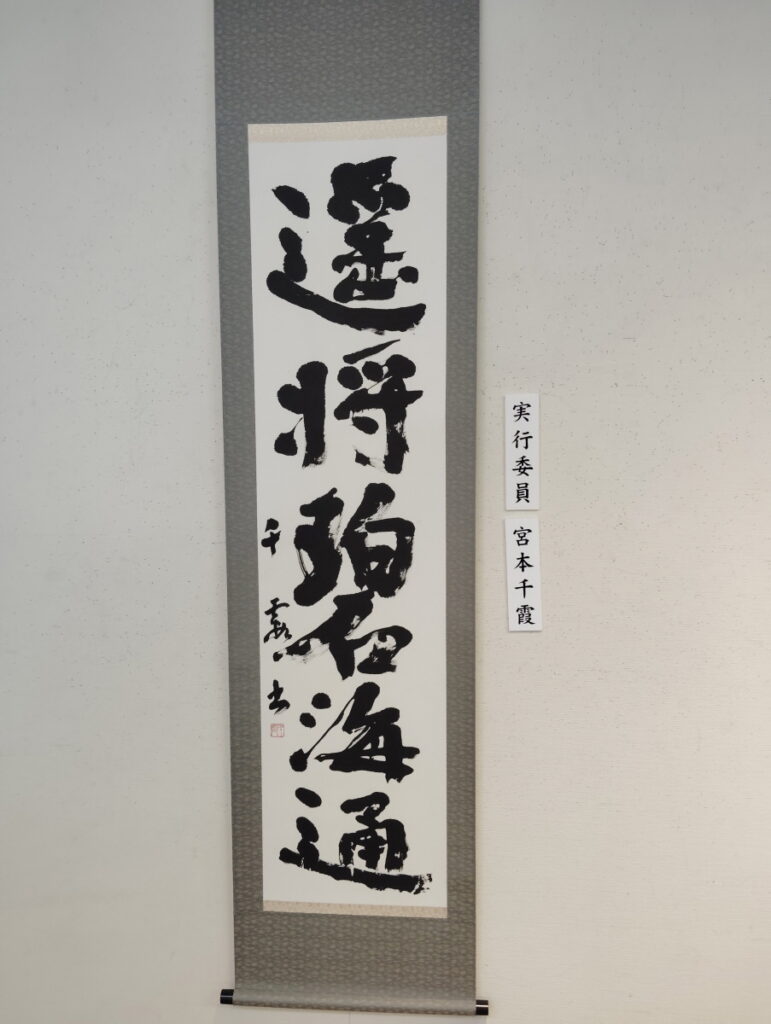 遥将碧海通
千霞書
実行委員
宮本千霞